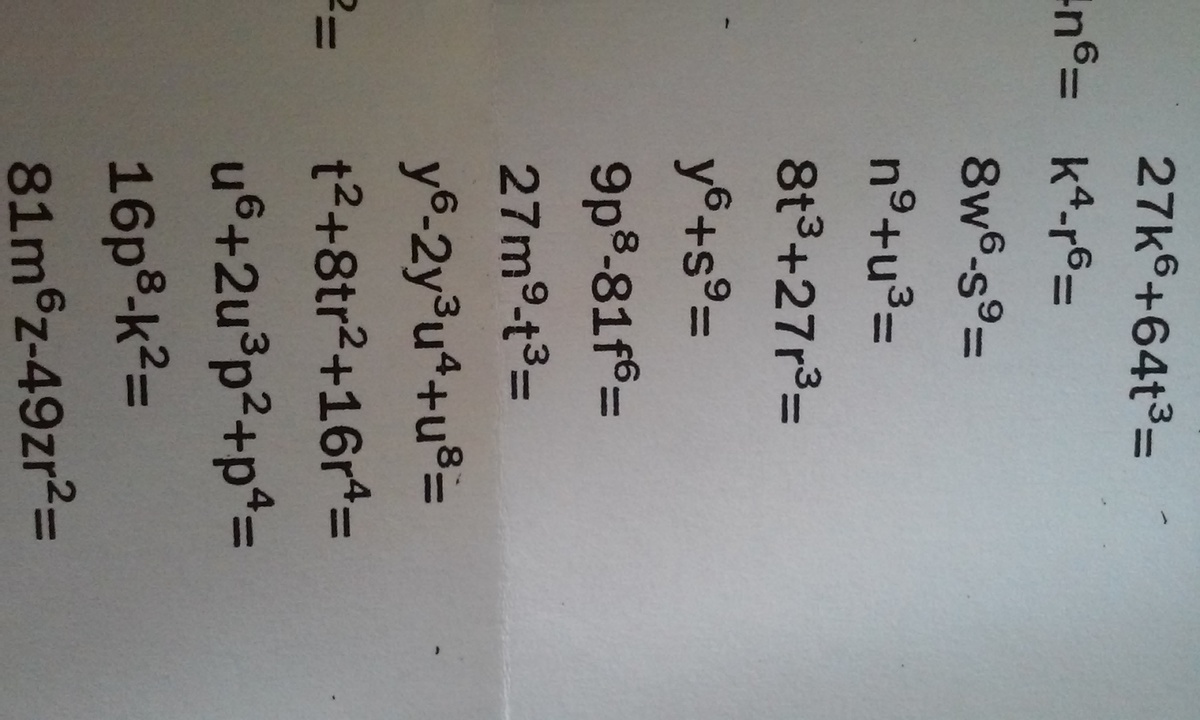 27k⁶+64t³=
n⁶= k⁴-r⁶=
8w⁶-s⁹=
n⁹+u³=
8t³+27r³=
y⁶+s⁹=
9p⁸-81f⁶=
27m⁹-t³=
y⁶-2y³u⁴+u⁸=
²= t²+8tr²+16r⁴=
u⁶+2u³p²+p⁴=
16p⁸-k²=
81m⁶z-49zr²=